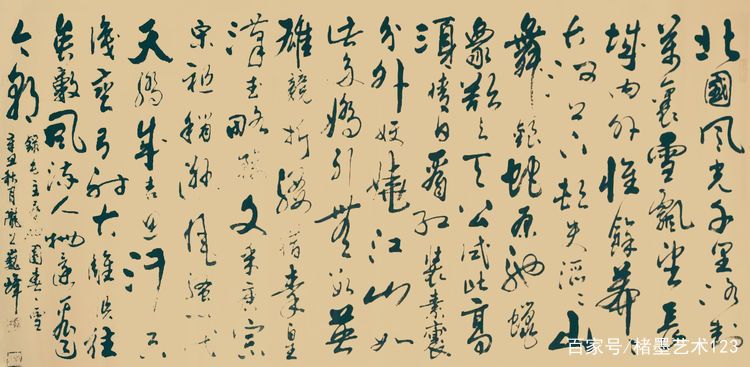 北國風光千里冰封
萬里雪飄望長
城内外惟餘莽々
大河上下頓失滔々山
舞銀蛇原馳蠟
象欲与天公試比高
須晴日看紅裝素裹
分外妖嬈江山如
此多嬌引無數英
雄競折腰惜秦皇
漢武略輸文采唐宗
宋祖稍遜風騷一代
天驕成吉思汗只
識彎弓射大雕俱往
矣數風流人物還看
今朝
錄毛主席沁園春々雪
辛丑秋月
百家号/楮墨艺术123